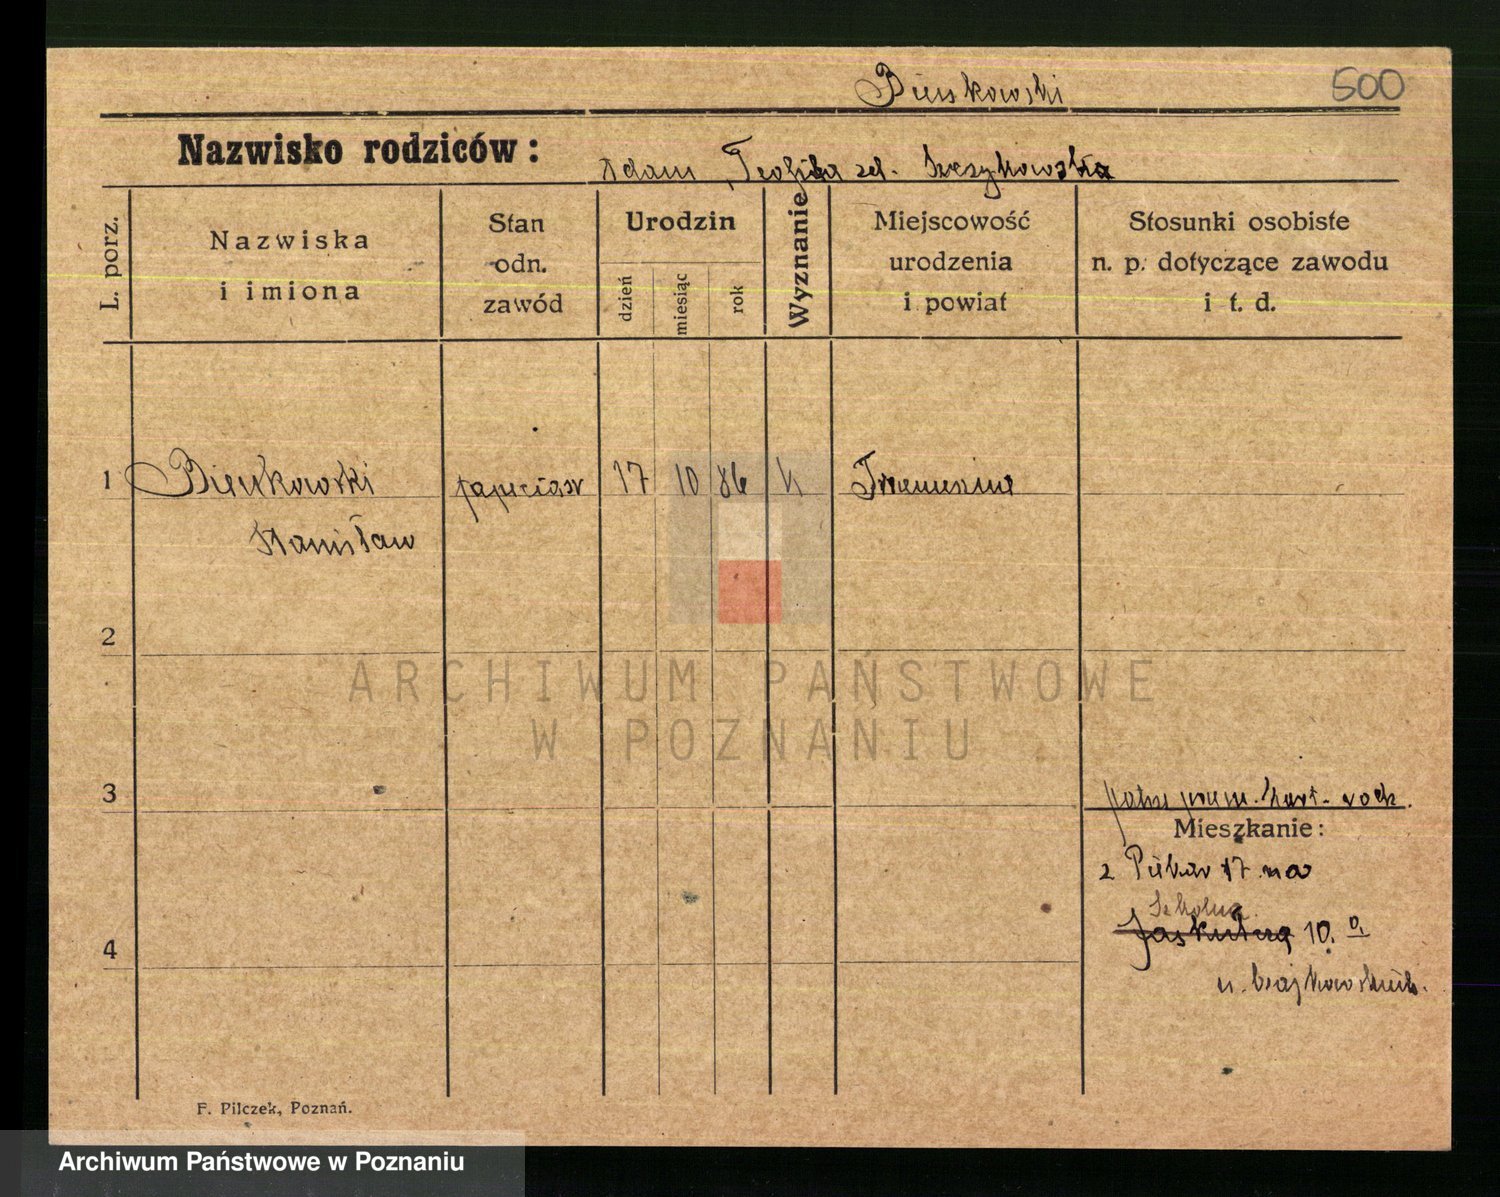 Bieńkowski 500
Nazwisko rodziców:
Adam, Teofila
L. porz.
Nazwiska
i imiona
Stan
odn.
zawód
Urodzin
dzień
miesiąc
rok
Wyznanie
Miejscowość
urodzenia
i powiat
Stosunki osobiste
n. p. dotyczące zawodu
i t. d.
1 Bieńkowski 17 10 86 k Trzemeszno
Stanisław
2
3
Mieszkanie:
2 Piekar 17
Szkolna
10.
4
F. Pilczek, Poznań.
ARCHIWUM PAŃSTWOWE
W POZNANIU
Archiwum Państwowe w Poznaniu